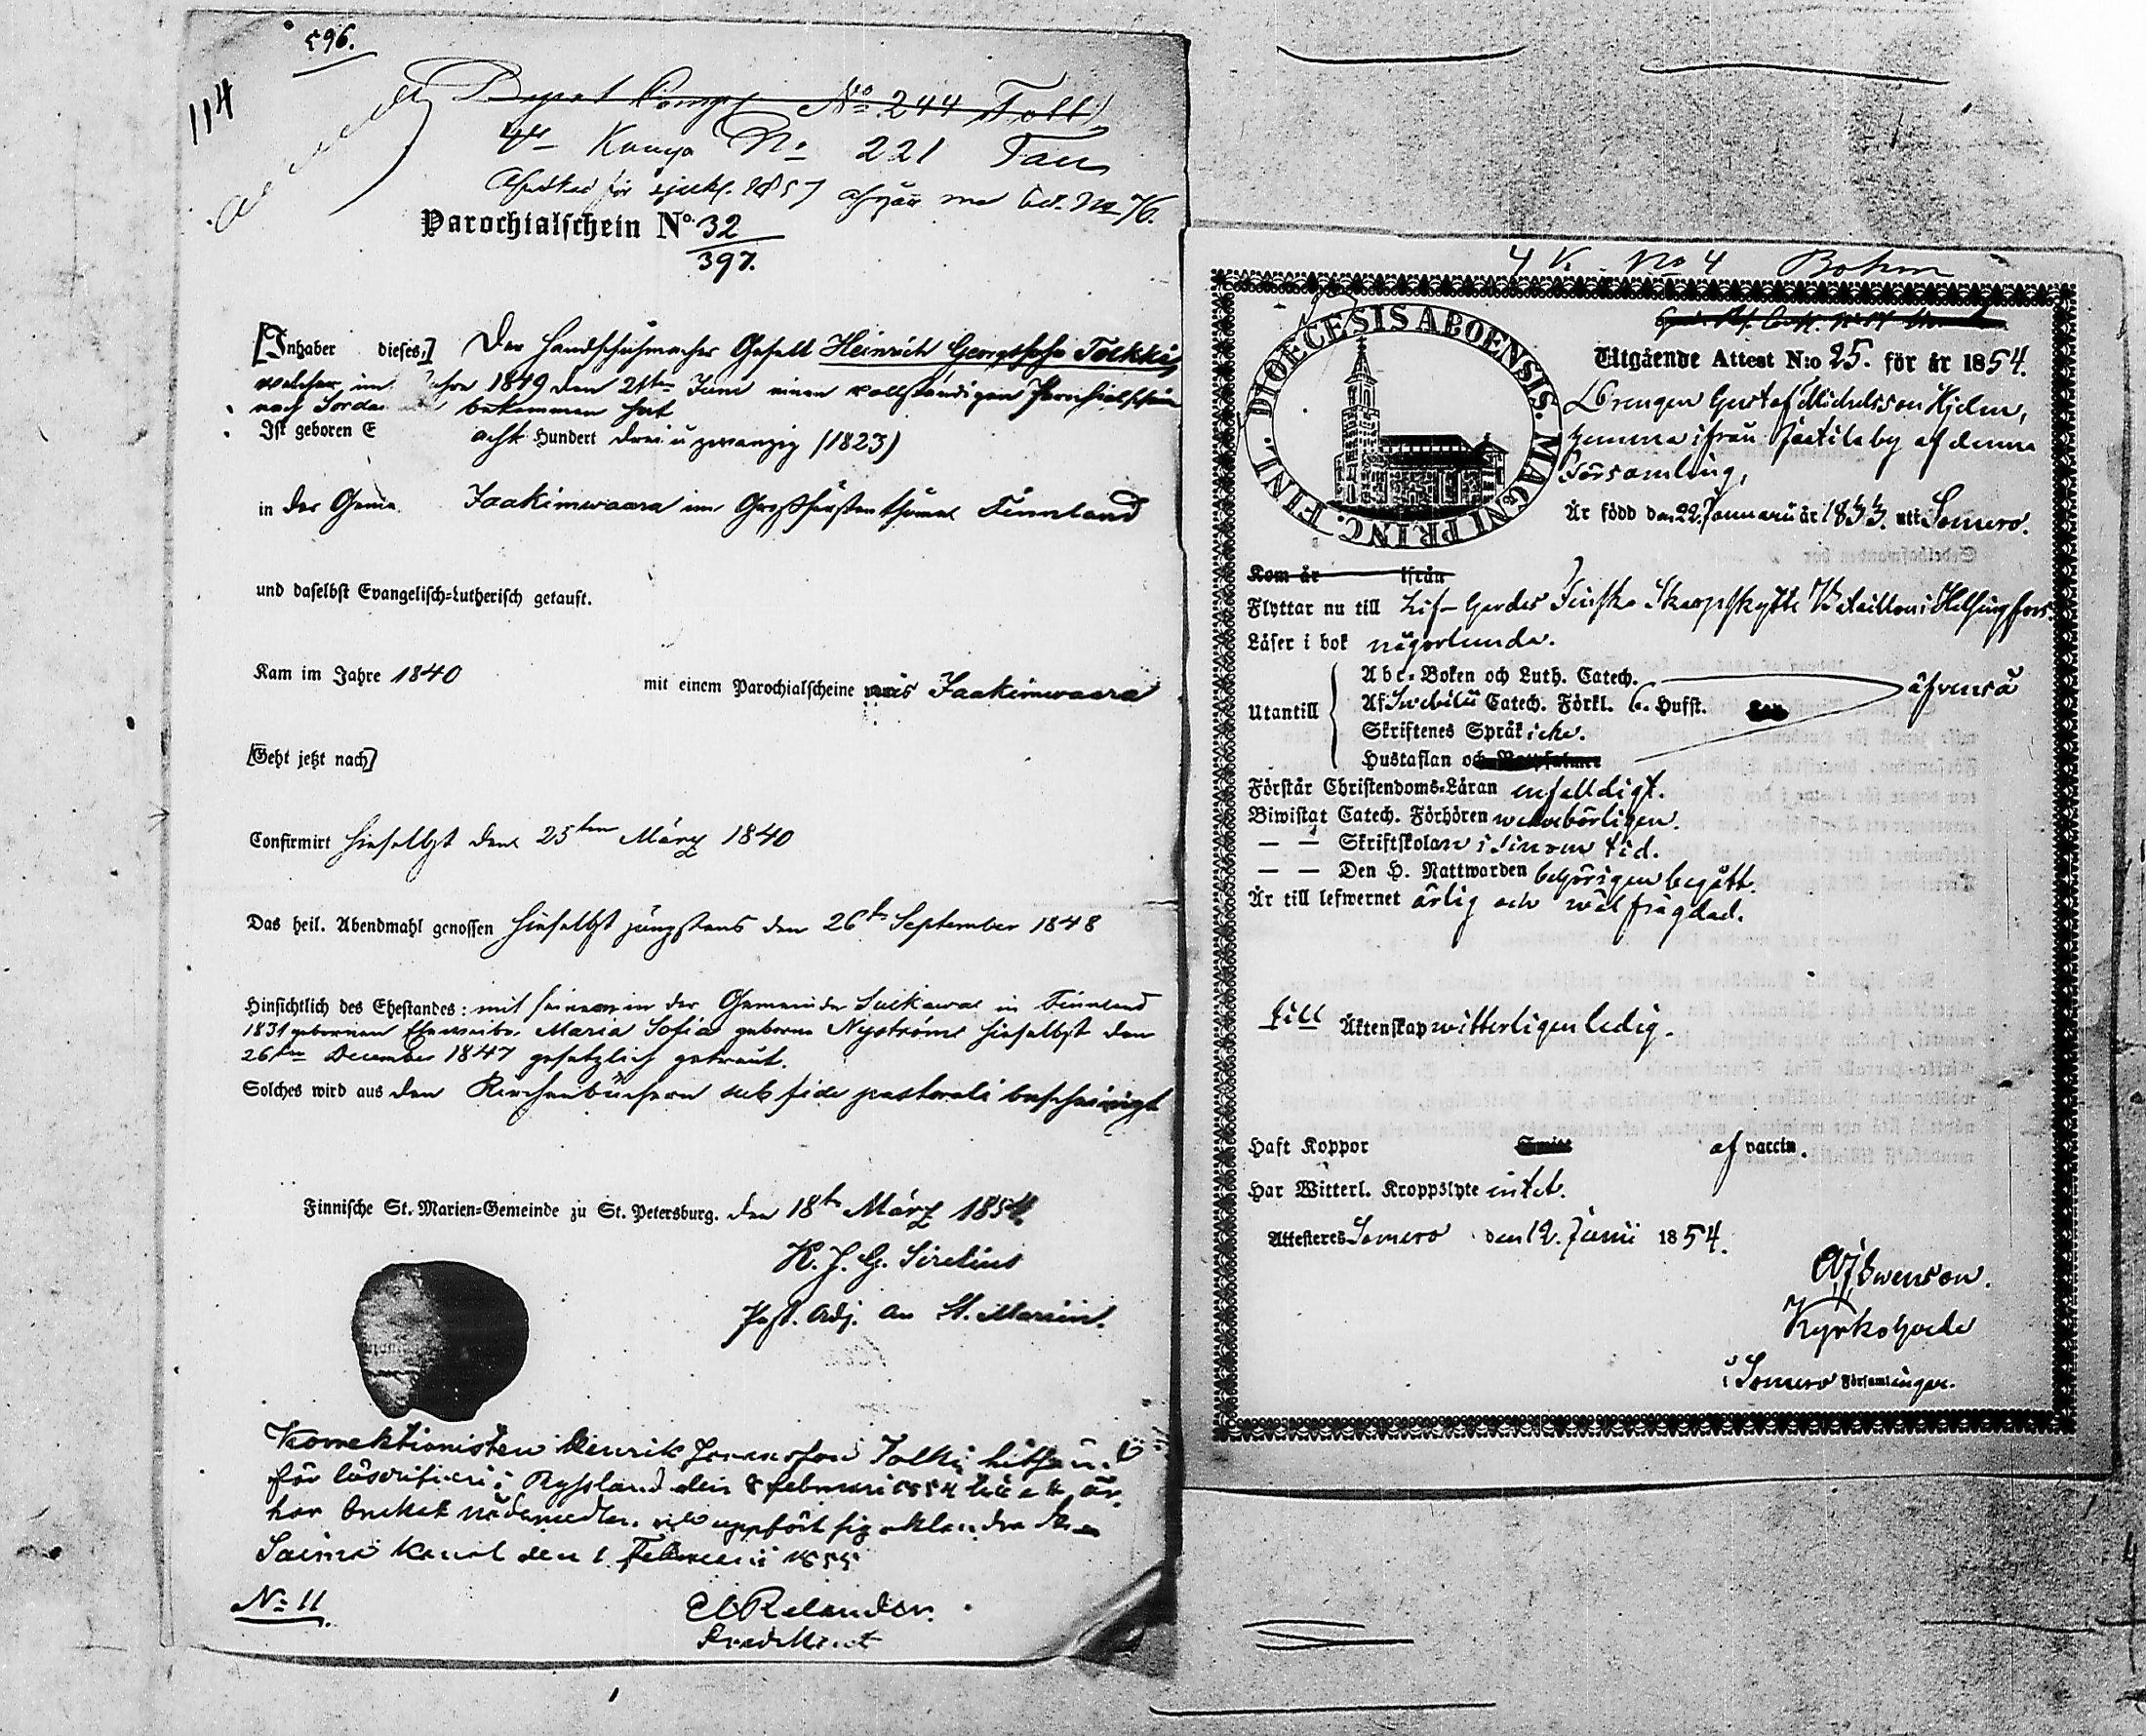 596.
114
Depot Komp No 244 Tolki
4de Komp. No 221 Tau
1857 No 76.
Parochialschein No. 32
397.
[Inhaber dieses,] Der Handschuhmacher Gesell Heinrich Georgssohn Tolkki,
welcher im Jahre 1849 den 21ten Juni einen vollständigen Parochialschein
nach Sorda bekommen hat
Ist geboren E acht Hundert drei u zwanzig (1823)
in der Geme Jaakimwaara im Großfürstenthume Finnland
und daselbst Evangelisch-Lutherisch getauft.
Kam im Jahre 1840 mit einem Parochialscheine aus Jaakimwaara
[Geht jetzt nach]
Confirmirt hieselbst den 25ten März 1840
Das heil. Abendmahl genossen hieselbst jüngstens den 26ten September 1848
Hinsichtlich des Ehestandes: mit seiner in der Gemeinde in Finnland
1831 gebornen Eheweibe Maria Sofia geborne Nyström hieselbst den
26ten December 1847 gesetzlich getraut.
Solches wird aus den Kirchenbüchern sub fide pastorali bescheinigt
Finnische St. Marien-Gemeinde zu St. Petersburg. den 18ten März 1854
K. J. G. Sirelius
Past. Adj. an St. Marien.
Korrektionisten Henrik Tolki
för lösdrifveri i Ryssland den 8 februari 1854
har uppfört sig
Saima Kanal den 1 Februarii 1855
No 11
Relander.
Predikant
4 K. No 4 Bohm
DIOECESIS ABOENSIS. MAGNI PRINC. FINL.
Utgående Attest N:o 25. för år 1854.
Drengen Gustaf Michelsson Hjelm,
hemma ifrån Jaetila by af denna
Församling,
Är född den 22 Januarii år 1833. uti Somero.
Kom år ifrån
Flyttar nu till Lif-Gardes Finska Skarpskytte Bataillon i Helsingfors.
Läser i bok någorlunda.
Utantill
Abc-Boken och Luth. Catech.
Af Svebilii Catech. Förkl. 6. Hufst.
äfvenså
Skriftenes Språk icke.
Hustaflan och
Förstår Christendoms-Läran enfalldigt.
Biwistat Catech. Förhören wederbörligen.
— — Skriftskolan i sinom tid.
— — Den H. Nattwarden behörigen begått.
Är till lefwernet ärlig och wälfrägdad.
till Äktenskap witterligen ledig.
Haft Koppor af vaccin.
Har Witterl. Kroppslyte intet.
Attesteres Somero den 12. Junii 1854.
Swenson.
Kyrkoherde
i Somero Församlingar.